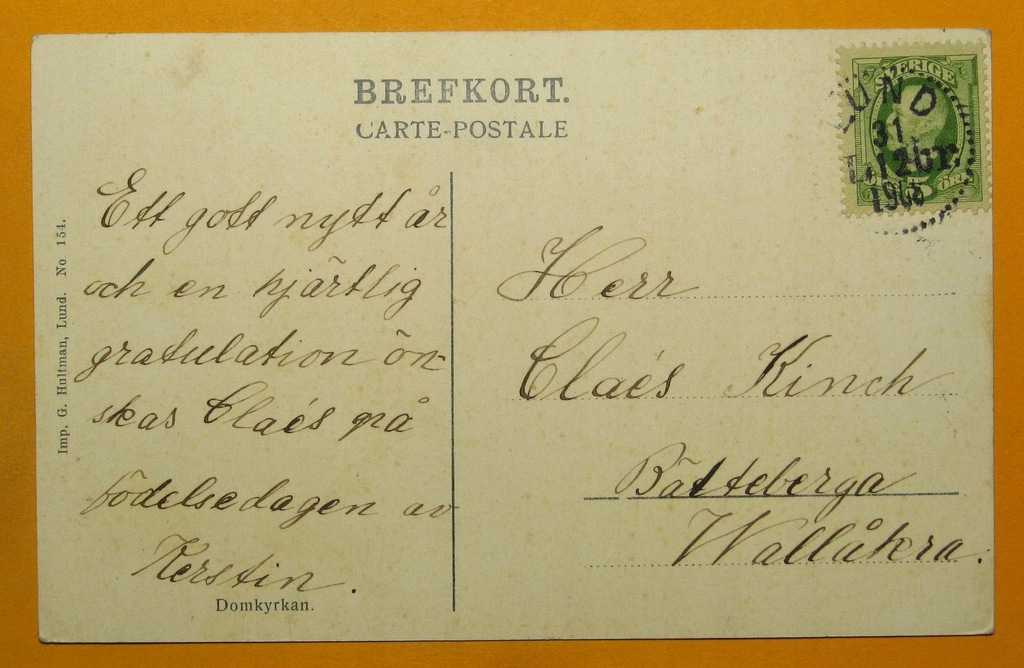 BREFKORT.
CARTE-POSTALE
SVERIGE
ÖRE
LUND
31
12
Imp. G. Hultman, Lund. No 154.
Ett gott nytt år
och en hjärtlig
gratulation ön-
skas Claës på
födelsedagen av
Kerstin.
Domkyrkan.
Herr
Claës Kinch
Bätteberga
Wallåkra.